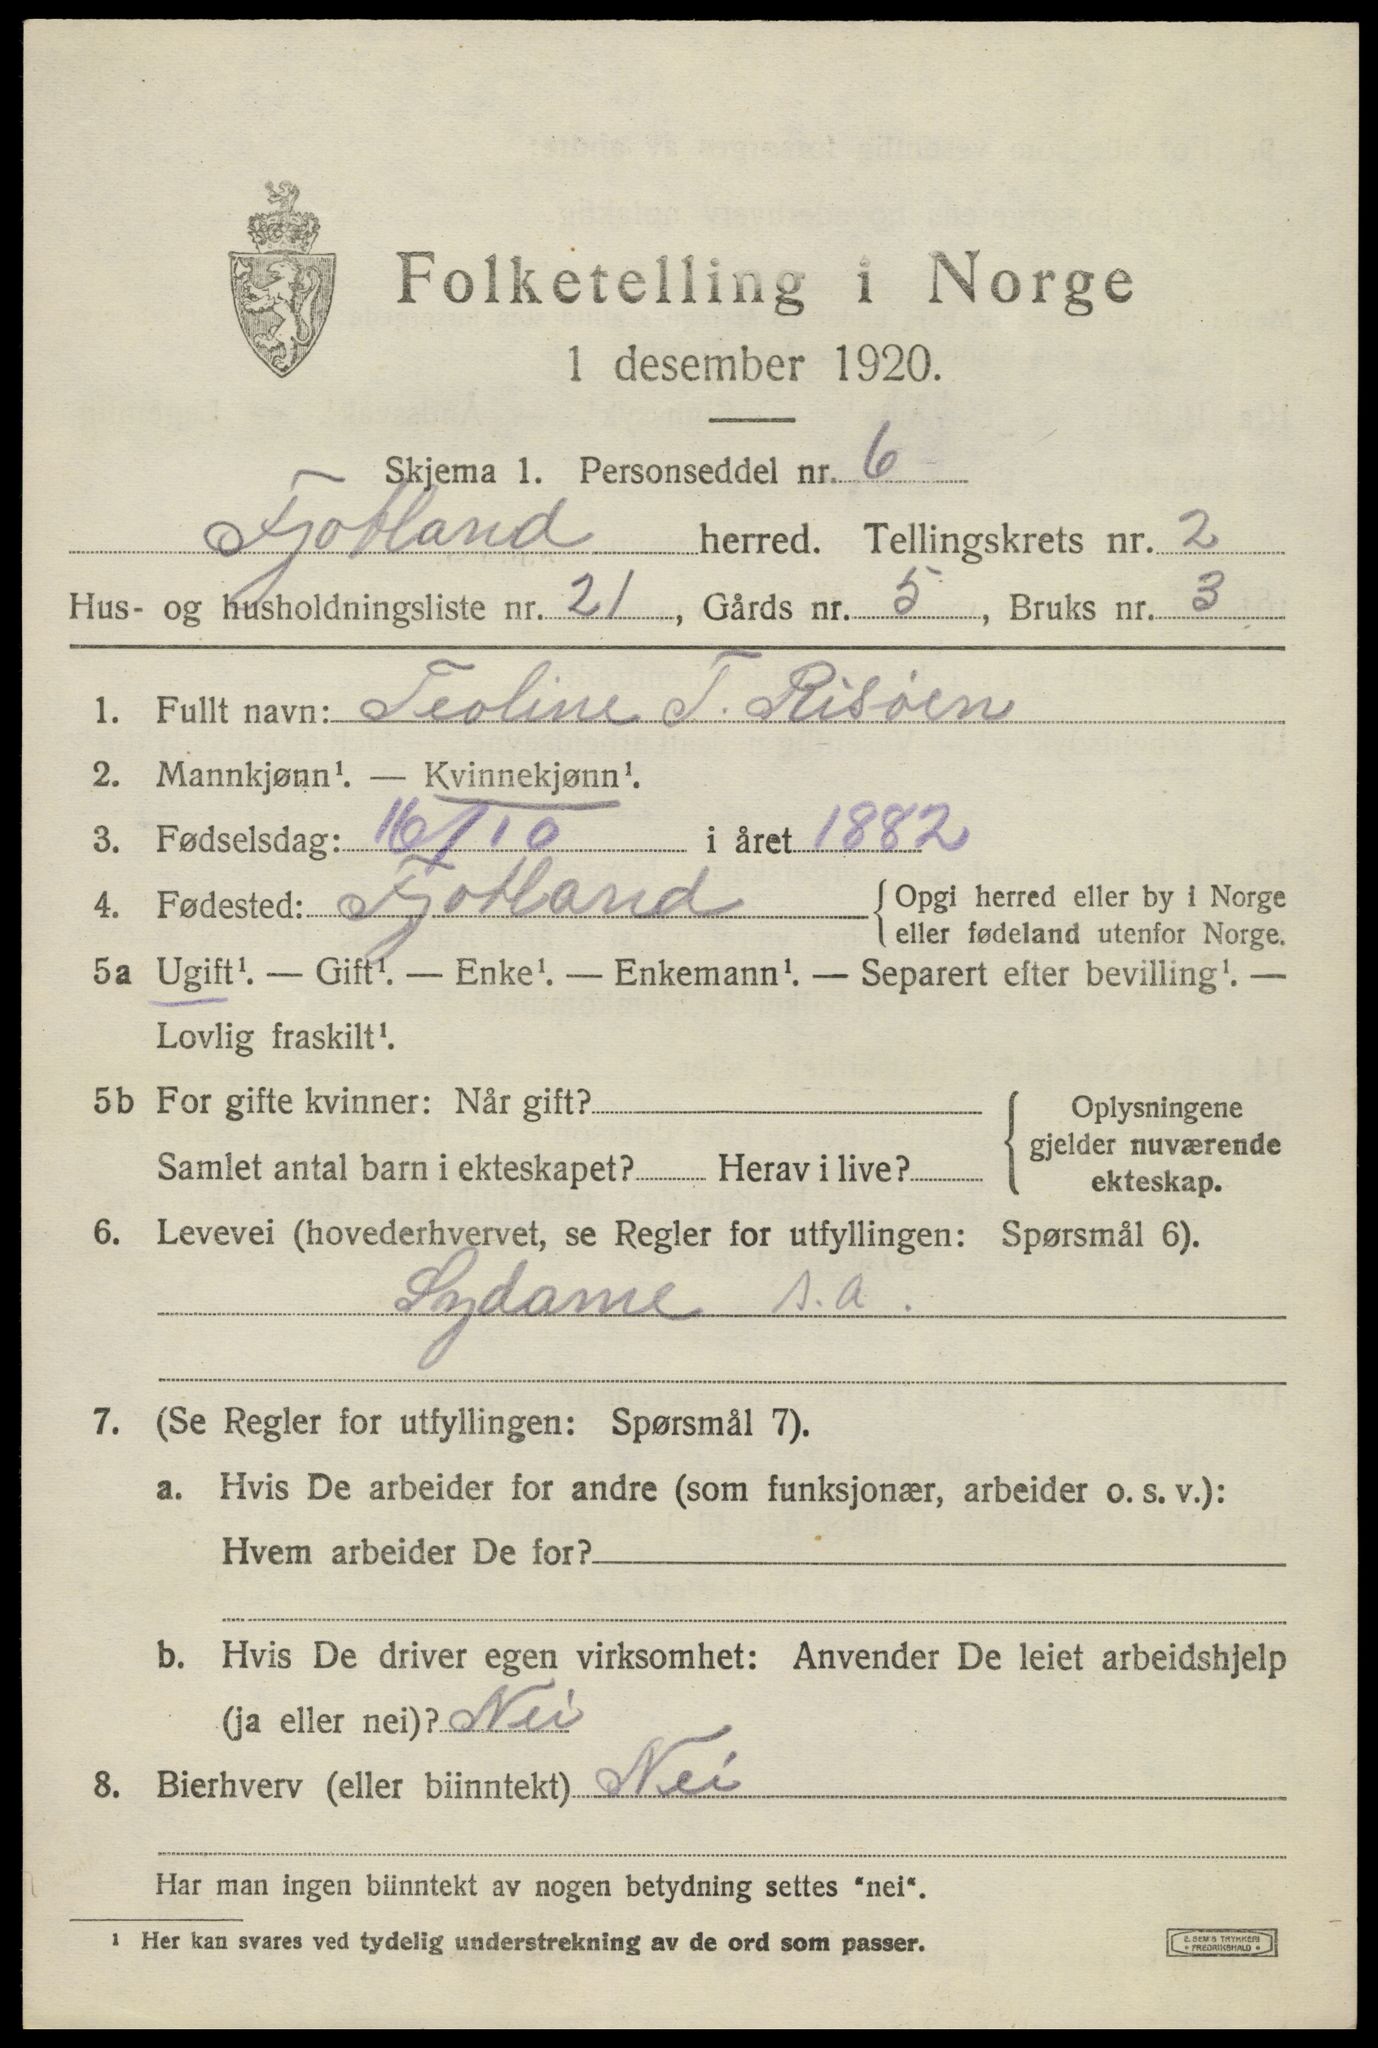 Folketelling i Norge
1 desember 1920.
Skjema 1. Personseddel nr. 6
Fjotland herred. Tellingskrets nr. 2
Hus- og husholdningsliste nr. 21, Gårds nr. 5, Bruks nr. 3
1. Fullt navn: Teoline T. Risöen
2. Mannkjønn¹. — Kvinnekjønn¹.
3. Fødselsdag: 16/10 i året 1882
4. Fødested: Fjotland { Opgi herred eller by i Norge
eller fødeland utenfor Norge.
5a Ugift¹. — Gift¹. — Enke¹. — Enkemann¹. — Separert efter bevilling¹. —
Lovlig fraskilt¹.
5b For gifte kvinner: Når gift?
Samlet antal barn i ekteskapet? Herav i live?
{ Oplysningene
gjelder nuværende
ekteskap.
6. Levevei (hovederhvervet, se Regler for utfyllingen: Spørsmål 6).
Sydame s.a.
7. (Se Regler for utfyllingen: Spørsmål 7).
a. Hvis De arbeider for andre (som funksjonær, arbeider o. s. v.):
Hvem arbeider De for?
b. Hvis De driver egen virksomhet: Anvender De leiet arbeidshjelp
(ja eller nei)? Nei
8. Bierhverv (eller biinntekt) Nei
Har man ingen biinntekt av nogen betydning settes "nei".
¹ Her kan svares ved tydelig understrekning av de ord som passer.
E. SEM'S TRYKKERI
• FREDRIKSHALD •